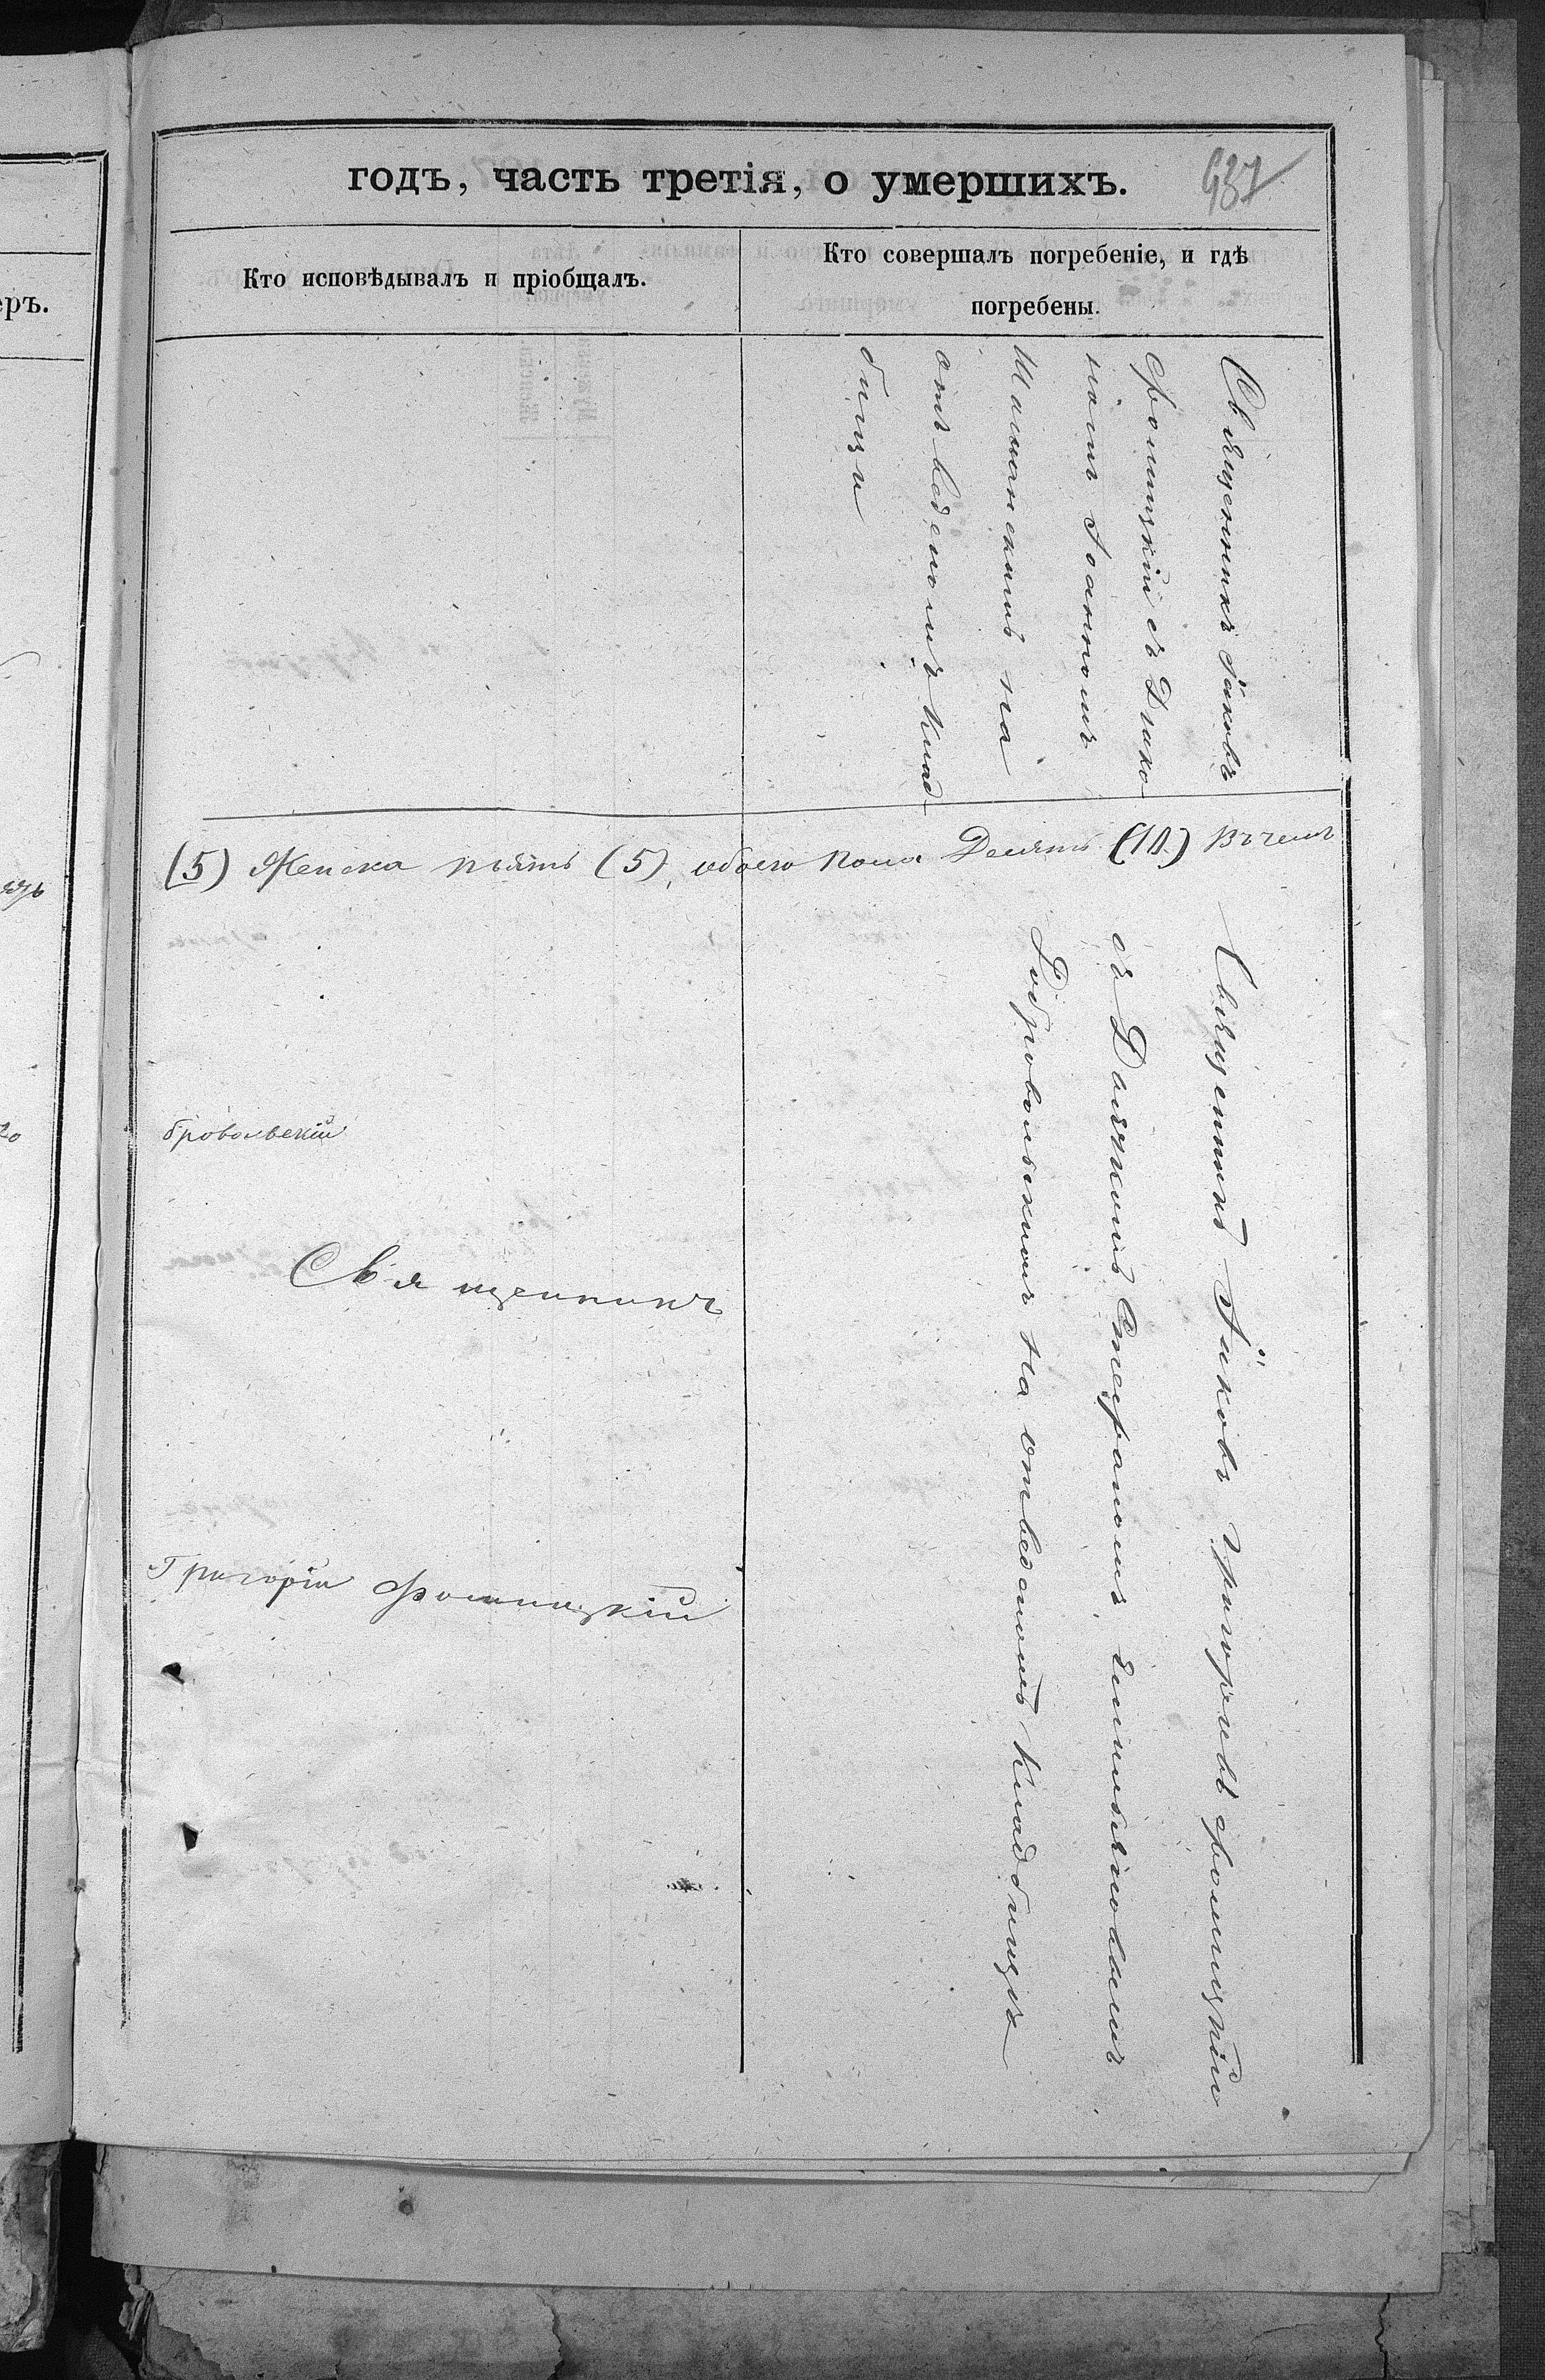 годъ, часть третія, о умершихъ.
Кто исповѣдывалъ и пріобщалъ.
Кто совершалъ погребеніе, и гдѣ
погребены.
Священникъ Іаковъ
Фомицкій съ Діако
номъ Іоанномъ
на
отведеномъ клад
бищи
(5) Женска пьять (5), обоего пола Десять (10.) Въ чемъ
Священникъ Іаковъ Григорьевъ Фомицкій
съ Дьячкомъ Стефаномъ
Добровольскимъ на отведеномъ кладбищѣ
бровольскій
Священникъ
Григорій Фомицкій
еръ.